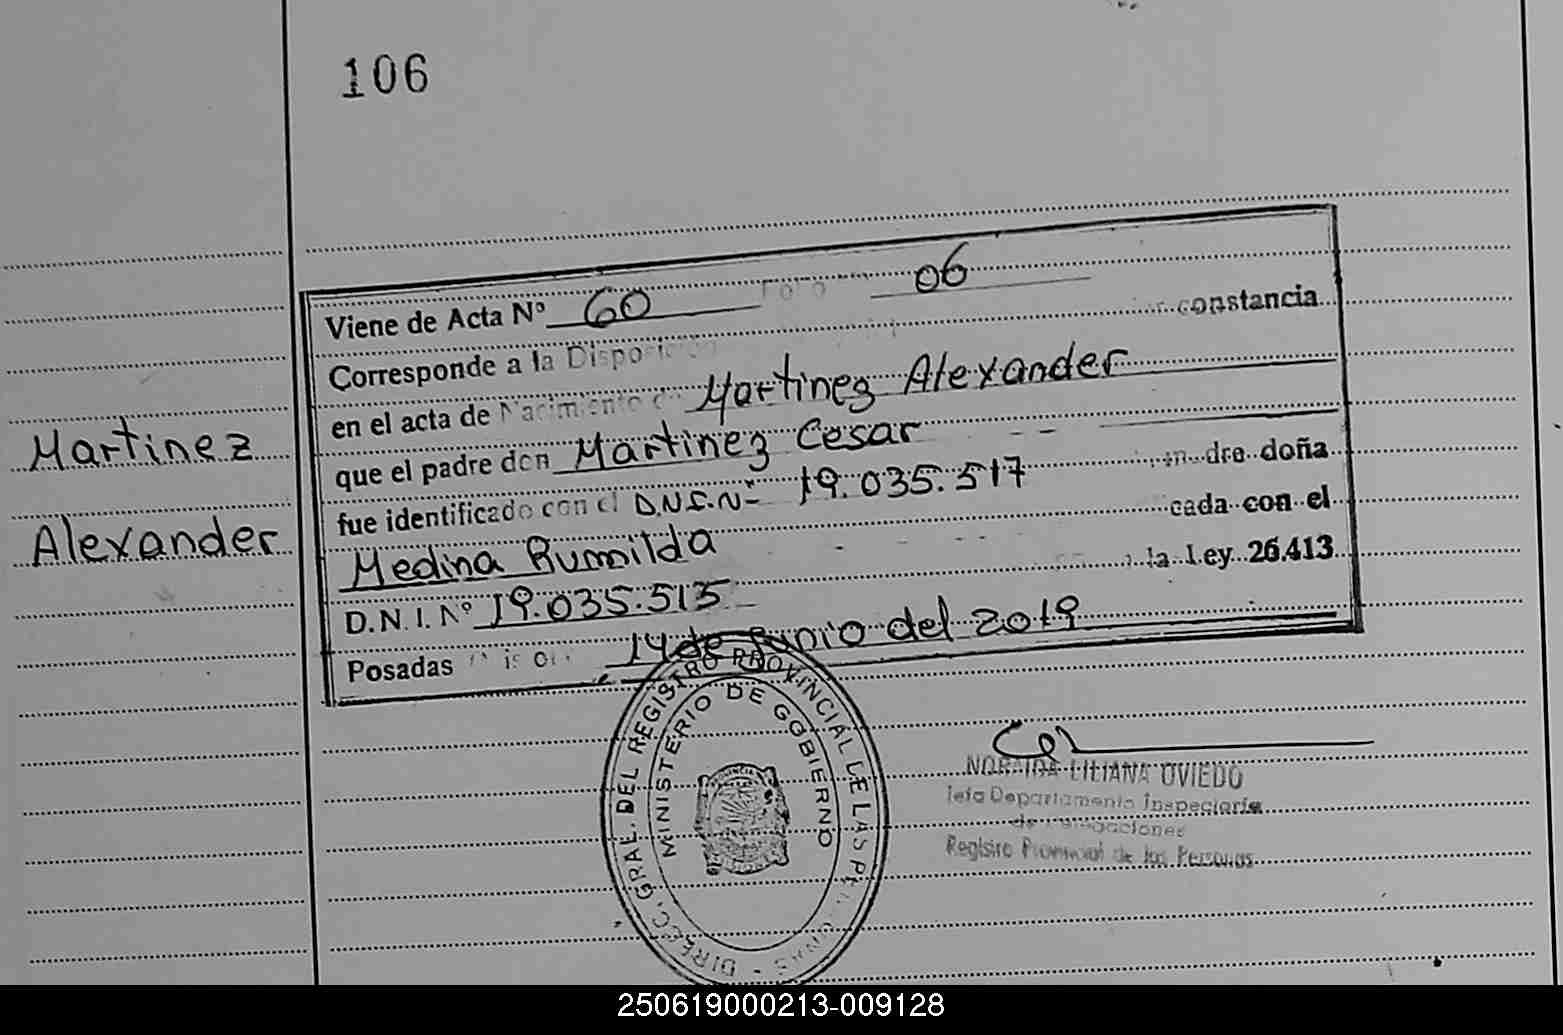 106
Viene de Acta Nº 60 Folio 06
Corresponde a la Disposición constancia
en el acta de Nacimiento de Martinez Alexander
que el padre don Martinez Cesar
fue identificado con el D.N.I. Nº 19.035.517 madre doña
Medina Rumilda cada con el
D.N.I. Nº 19.035.515 la Ley 26.413
Posadas Misiones 14 de Junio del 2019
Martinez
Alexander
DIRECC. GRAL. DEL REGISTRO PROVINCIAL DE LAS PERSONAS
MINISTERIO DE GOBIERNO
NORAIDA LILIANA OVIEDO
Jefa Departamento Inspectoría
de Delegaciones
Registro Provincial de las Personas
250619000213-009128